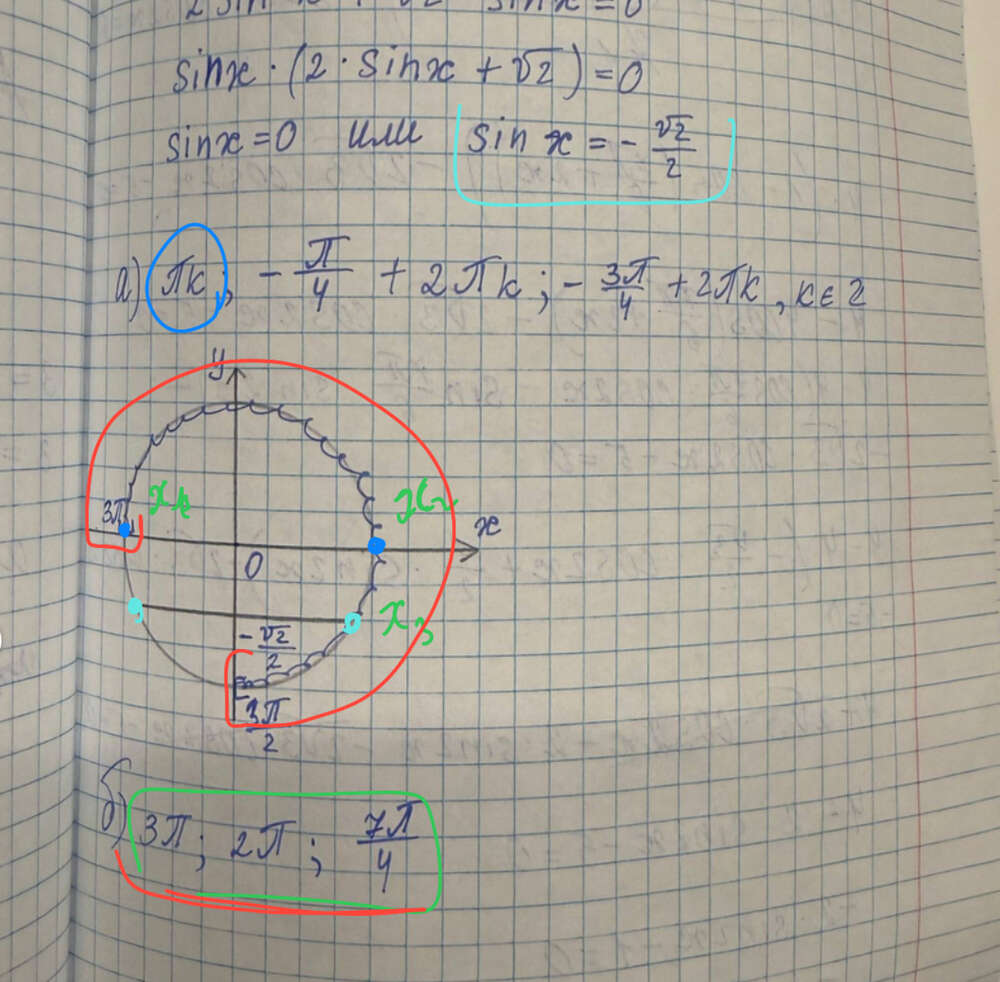 2sin
sinx = 0
sinx · (2 · sinx + √2) = 0
sinx = 0 или sin x = - √2/2
а) πk; - π/4 + 2πk; - 3π/4 + 2πk, k ∈ Z
y
3π x₁ x₂ x
0
x₃
- √2/2
3π/2
б) 3π; 2π; 7π/4